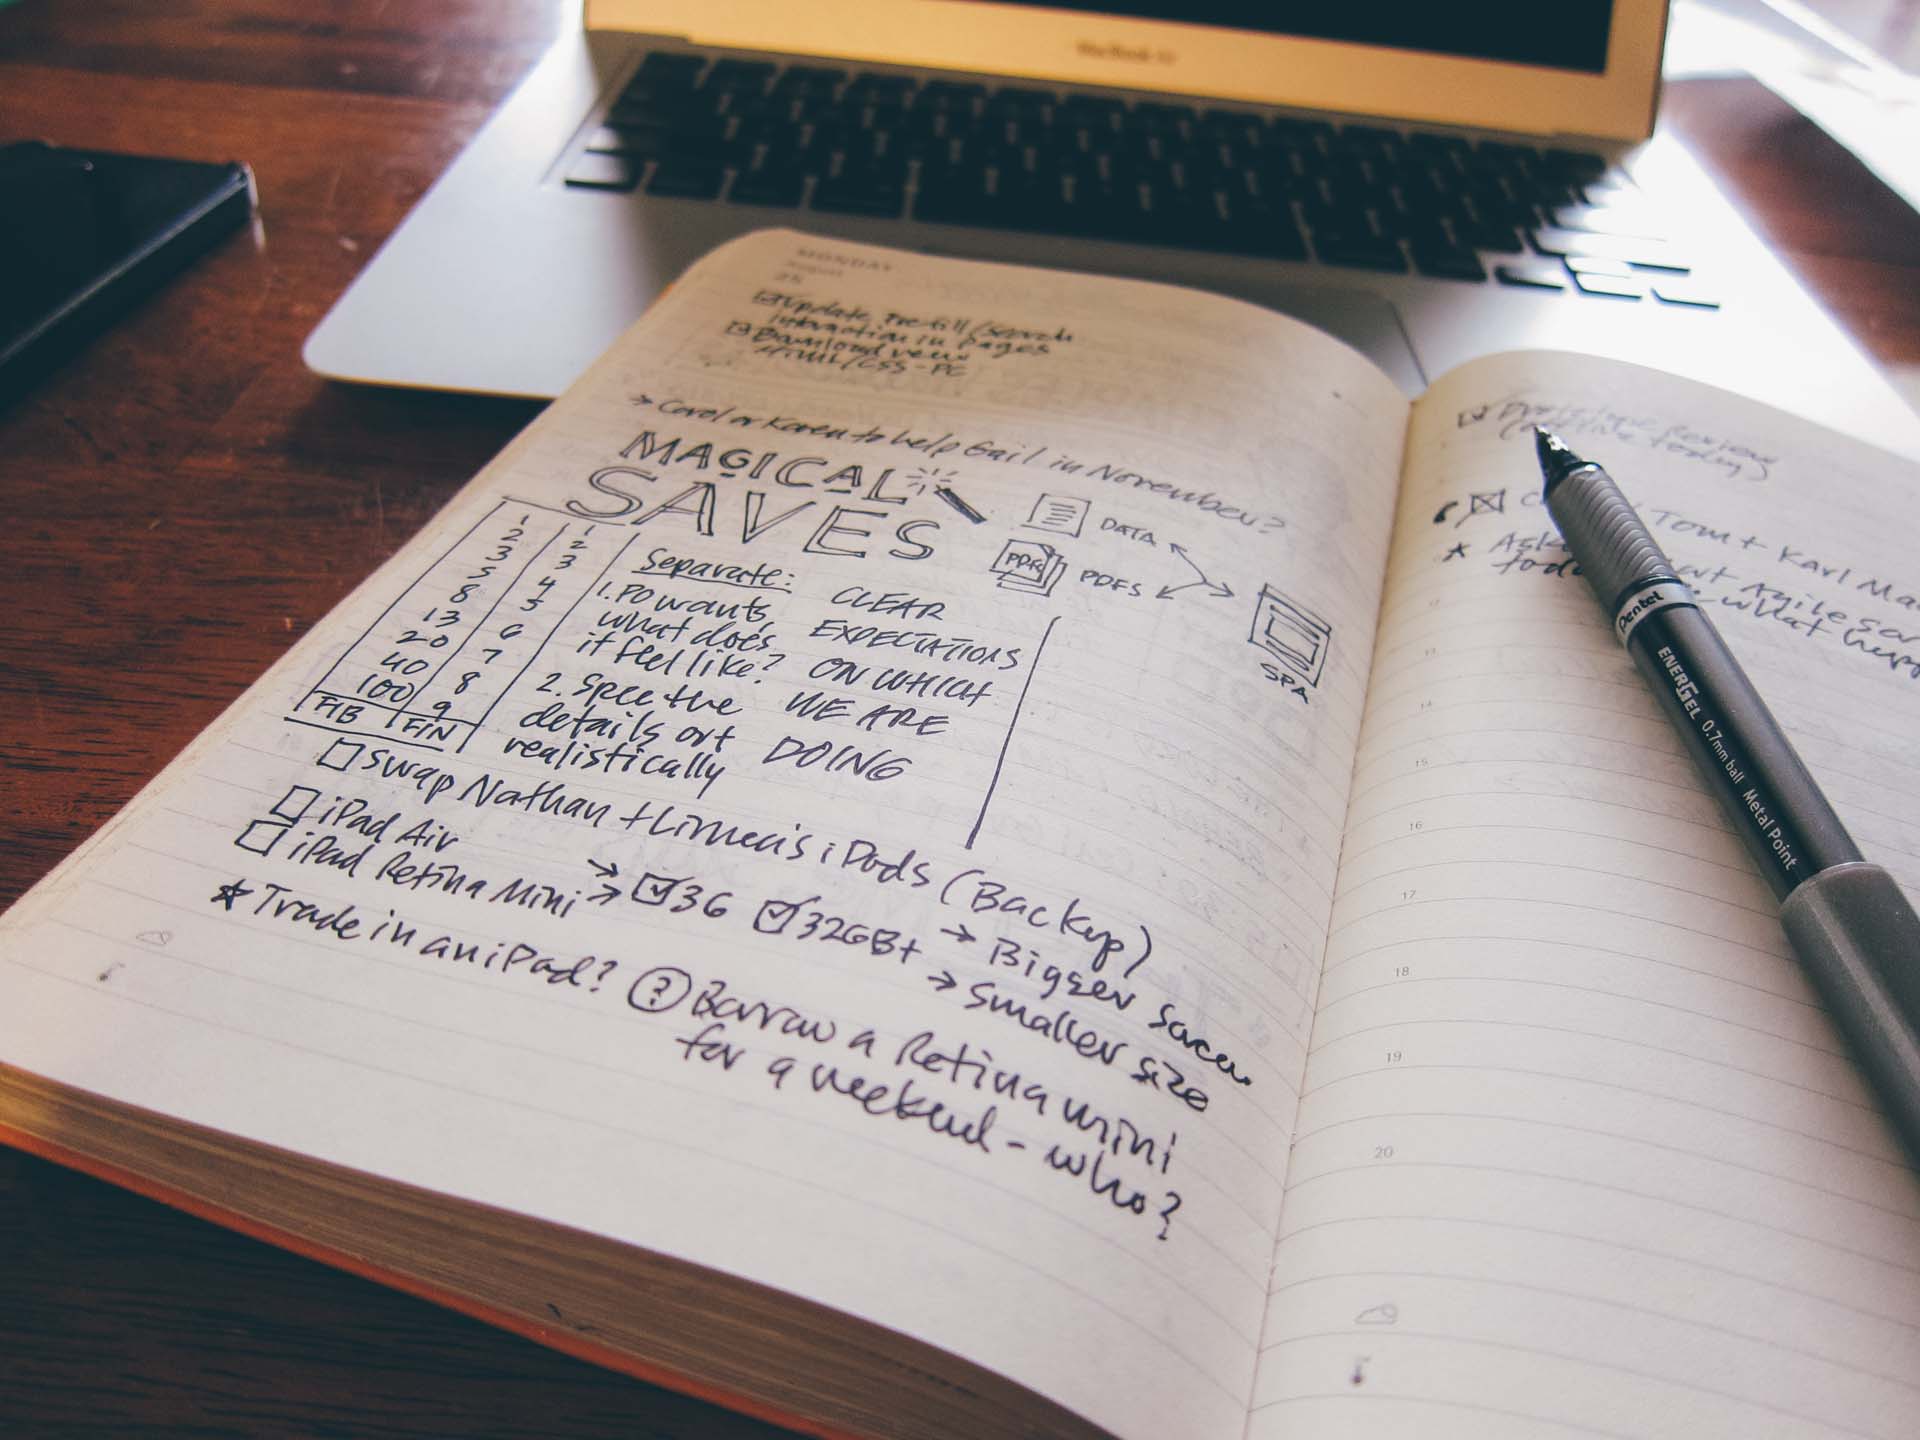 MacBook Air
MONDAY
August
25
Update Prefill/search
interaction in pages
Download
HTML/CSS - PC
→ Carol or Karen to help Gail in November?
MAGICAL
SAVES
DATA
PDFs
PDFS
SPA
1 1
2 2
3 3
5 4
8 5
13 6
20 7
40 8
100 9
FIB FIN
Separate:
1. PO wants,
what does
it feel like?
2. Spec the
details out
realistically
CLEAR
EXPECTATIONS
ON WHICH
WE ARE
DOING
☐ Swap Nathan + iPods (Backup)
☐ iPad Air → Bigger screen
☐ iPad Retina Mini → ☑ 3G ☑ 32GB+ → Smaller size
★ Trade in an iPad? ? Borrow a Retina mini
for a weekend - who?
Review
today
Tom + Karl
Ask
what
13
14
15
16
17
18
19
20
Pentel
ENERGEL 0.7mm ball Metal Point